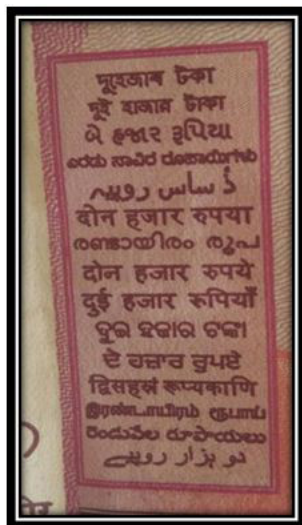 দুহেজাৰ টকা
দুই হাজার টাকা
બે હજાર રૂપિયા
ಎರಡು ಸಾವಿರ ರೂಪಾಯಿಗಳು
زٕ ساس روپیہِ
दोन हजार रुपया
രണ്ടായിരം രൂപ
दोन हजार रुपये
दुई हजार रुपियाँ
ଦୁଇ ହଜାର ଟଙ୍କା
ਦੋ ਹਜ਼ਾਰ ਰੁਪਏ
द्विसहस्रं रूप्यकाणि
இரண்டாயிரம் ரூபாய்
రెండువేల రూపాయలు
دو ہزار روپیے